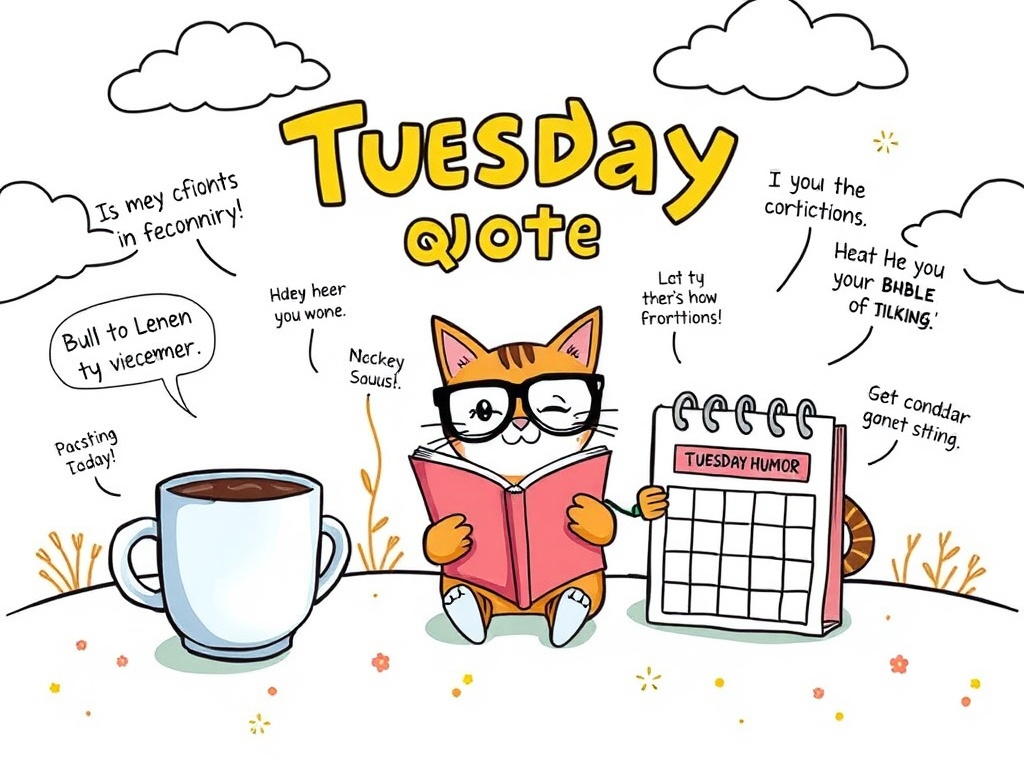 Tuesday
Quote
Is mey cfionts
in feconniry!
I youl the
corticticns.
Heat He you
your BHBLE
of TILKING.'
Hdey heer
you wone.
Lct ty
ther's how
frorttions!
Bull to Lenen
ty viecemmer.
Nockey
Souus!.
Get conddar
gonet sthing.
Pacsting
Today!
TUESDAY HUMOR